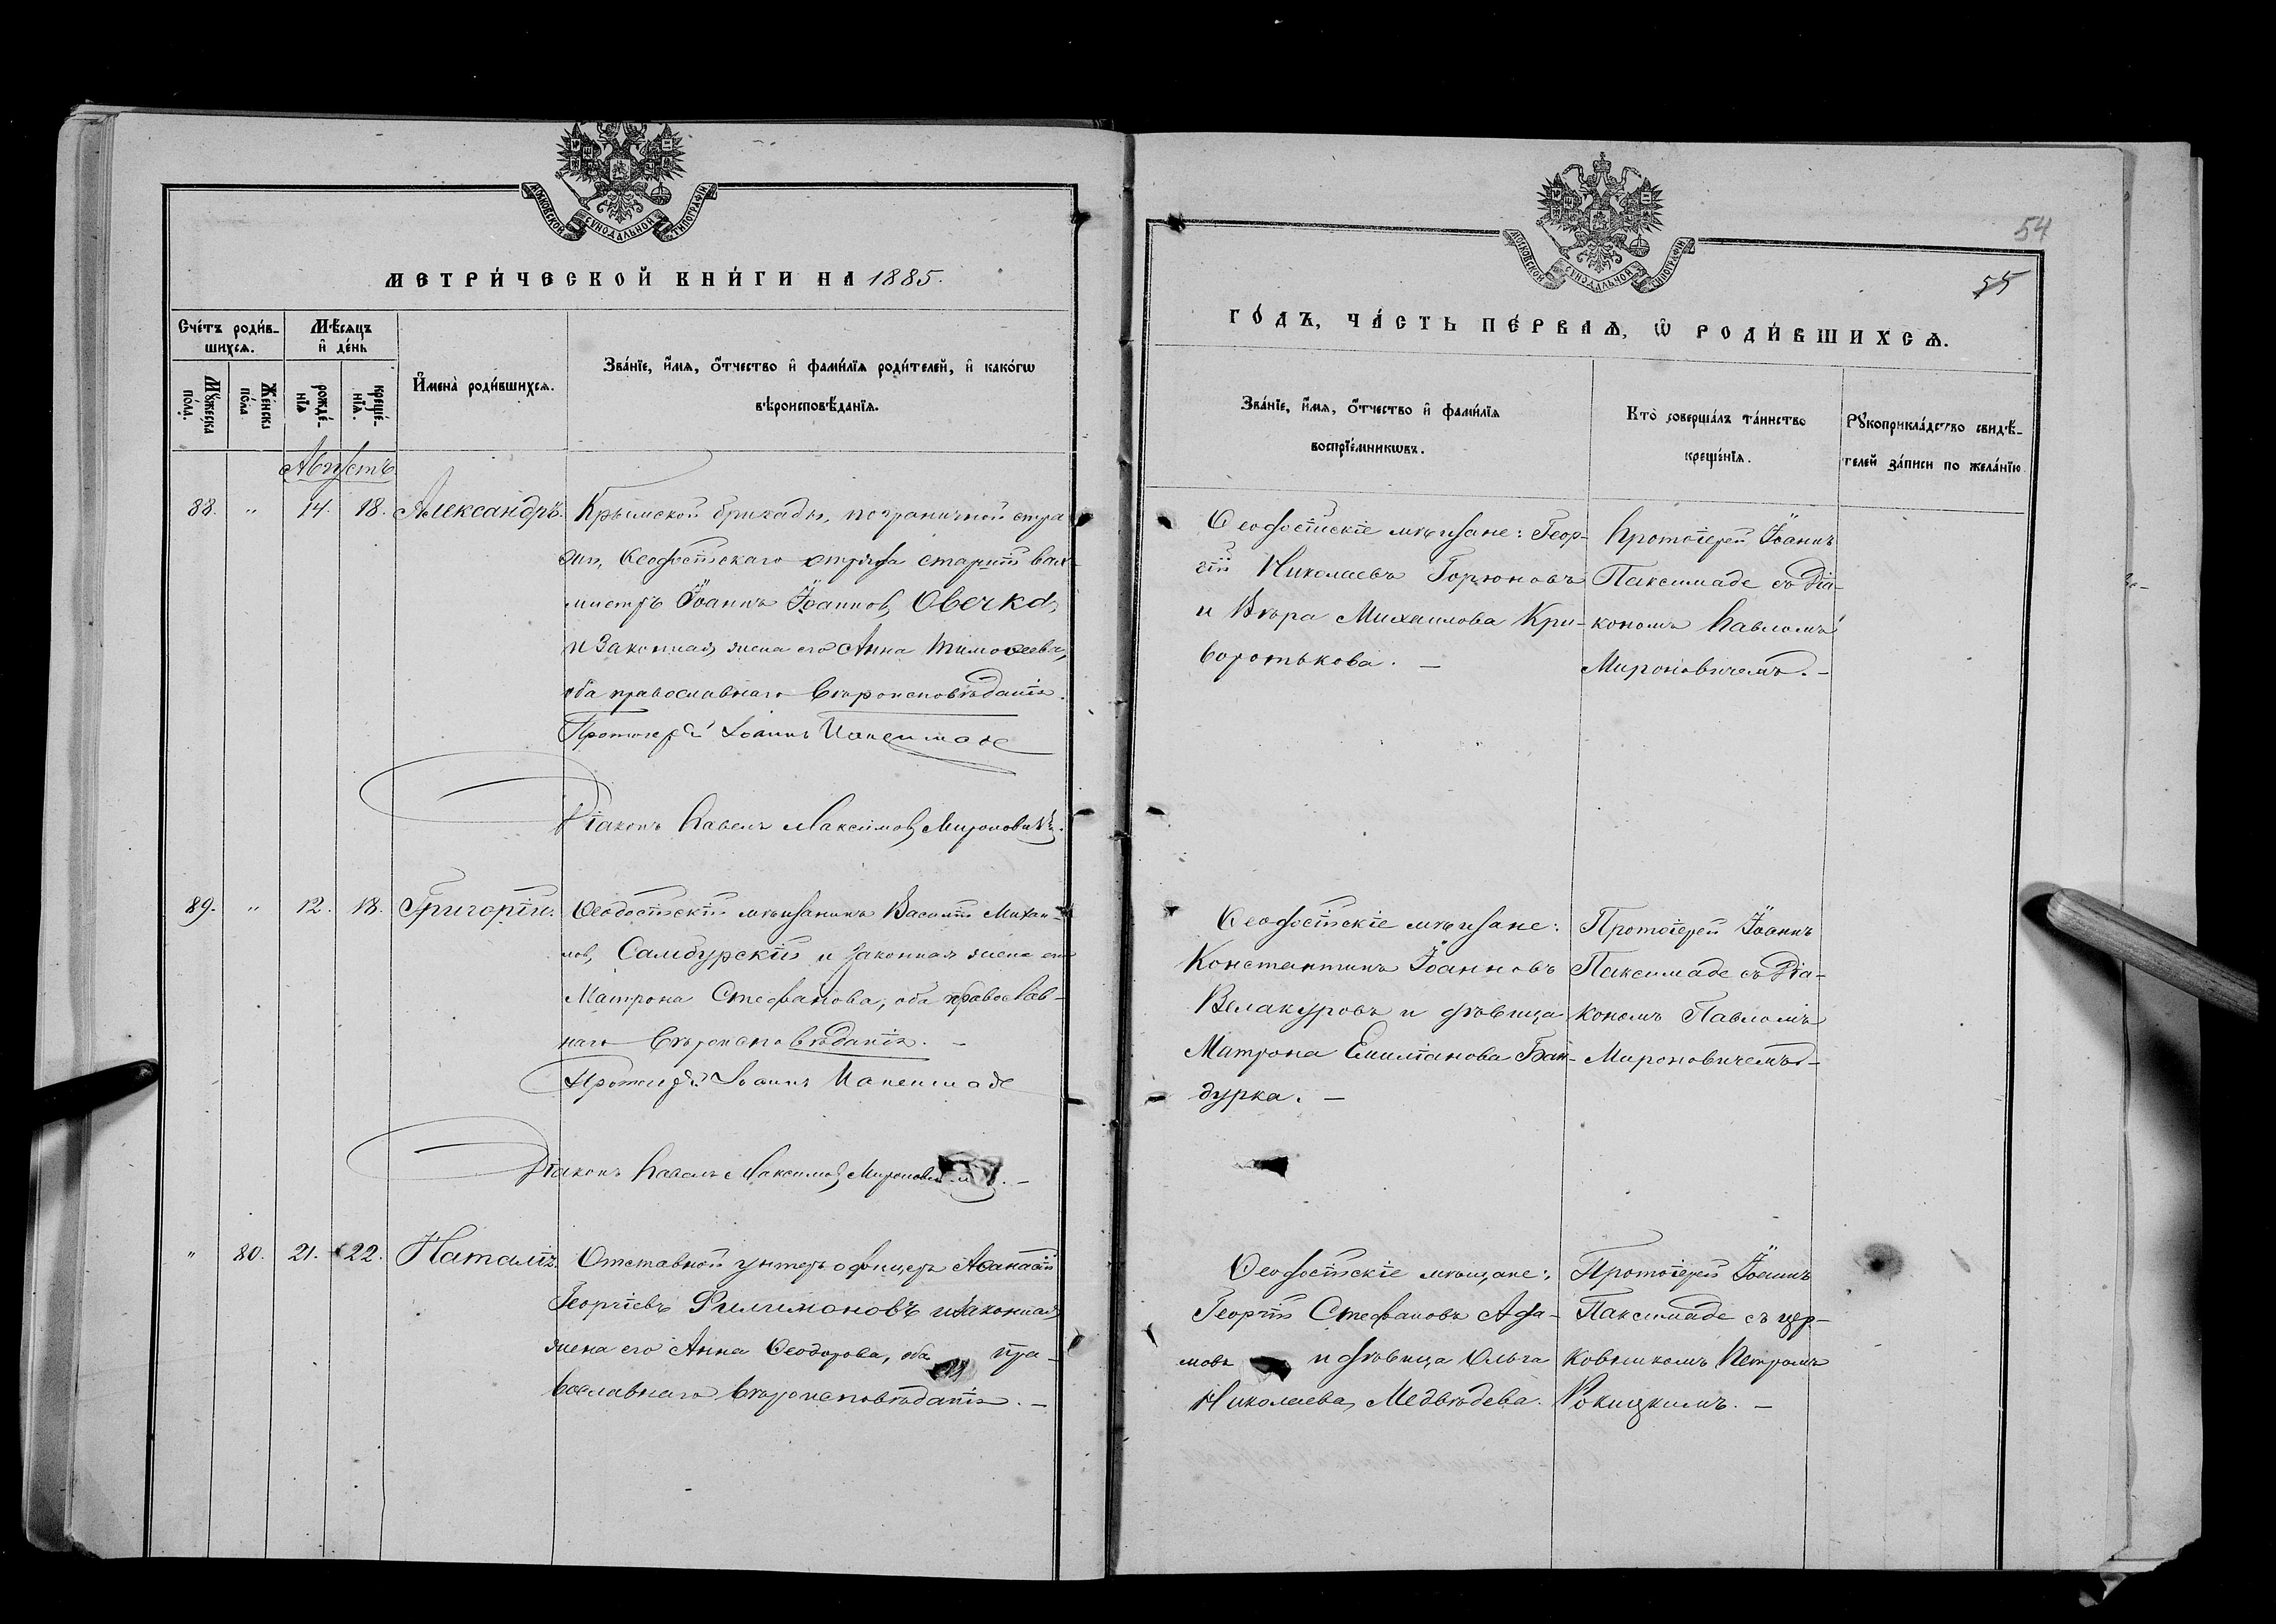 МОСКОВСКОЙ СѴНОДАЛЬНОЙ ТИПОГРАФІИ
МЕТРИ́ЧЕСКОЙ КНИ́ГИ НА 1885.
Сче́тъ роди́в-
шихсѧ.
Мѣ́сѧцъ
и҆ де́нь
Мꙋ́жеска
по́ла.
Же́нска
по́ла
рожде́-
нїѧ
креще́-
нїѧ.
И҆мена̀ роди́вшихсѧ.
Зва́нїе, и҆́мѧ, ѻ҆́тчество и҆ фами́лїѧ роди́телей, и҆ како́гѡ
вѣроисповѣ́данїѧ.
Августъ
88. " 14. 18. Александръ.
Крымской бригады, пограничной стра
жи, Ѳеодосійскаго отряда старшій вах-
мистръ Іоаннъ Іоаннов, Овечка,
и законная жена его Анна Тимоѳеева,
оба православнаго вѣроисповѣданія.
Протоіерей Іоаннъ Паксимаде
Діаконъ Павелъ Максимов Мироновичъ.
89. " 12. 18. Григорій.
Ѳеодосійскій мѣщанинъ Василій Михаи-
лов, Самбурскій и законная жена его
Матрона Стефанова, оба православ-
наго вѣроисповѣданія. -
Протоіерей Іоаннъ Паксимаде
Діаконъ Павелъ Максимов Миронович. -
" 80. 21. 22. Наталія.
Отставной унтеръ офицеръ Аѳанасій
Георгіевъ Филимоновъ и законная
жена его Анна Ѳеодорова, оба пра-
вославнаго вѣроисповѣданія. -
54
МОСКОВСКОЙ СѴНОДАЛЬНОЙ ТИПОГРАФІИ
55
ГО́ДЪ, ЧА́СТЬ ПЕ́РВАѦ, Ѽ РОДИ́ВШИХСѦ.
Зва́нїе, и҆́мѧ, ѻ҆́тчество и҆ фами́лїѧ
воспрїе́мникѡвъ.
Кто̀ соверша́лъ та́инство
креще́нїѧ.
Рꙋкоприкла́дство свидѣ́-
телей за́писи по жела́нїю
Ѳеодосійскіе мѣщане: Геор-
гій Николаевъ Горюновъ
и Вѣра Михаилова Кри-
воротькова. -
Протоіерей Іоаннъ
Паксимаде съ Діа-
кономъ Павломъ
Мироновичемъ. -
Ѳеодосійскіе мѣщане:
Константинъ Іоанновъ
Велакуровъ и дѣвица
Матрона Емиліанова Бан-
дурка. -
Протоіерей Іоаннъ
Паксимаде съ Діа-
кономъ Павломъ
Мироновичемъ -
Ѳеодосійскіе мѣщане:
Георгій Стефановъ Ада-
мовъ и дѣвица Ольга
Николаева Медвѣдева.
Протоіерей Іоаннъ
Паксимаде съ цер-
ковникомъ Петромъ
Рокицкимъ. -